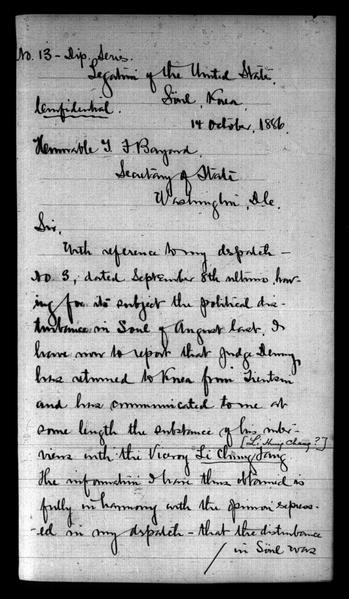 No. 13 - Dip. Series.
Legation of the United States
Söul Korea.
Confidential.
14 October, 1886.
Honorable T F Bayard.
Secretary of State
Washington, D.C.
Sir,
With reference to my dispatch -
No 3, dated September 8th ultimo, hav-
ing for its subject the political dis-
turbance in Soul of August last, I
have now to report that Judge Denny,
has returned to Korea from Tientsin
and has communicated to me at
some length the substance of his inter-
[Li Hung Chang?]
views with the Viceroy Li Chung Jang.
The information I have thus obtained is
fully in harmony with the opinion express-
-ed in my dispatch - that the disturbance
/ in Söul was